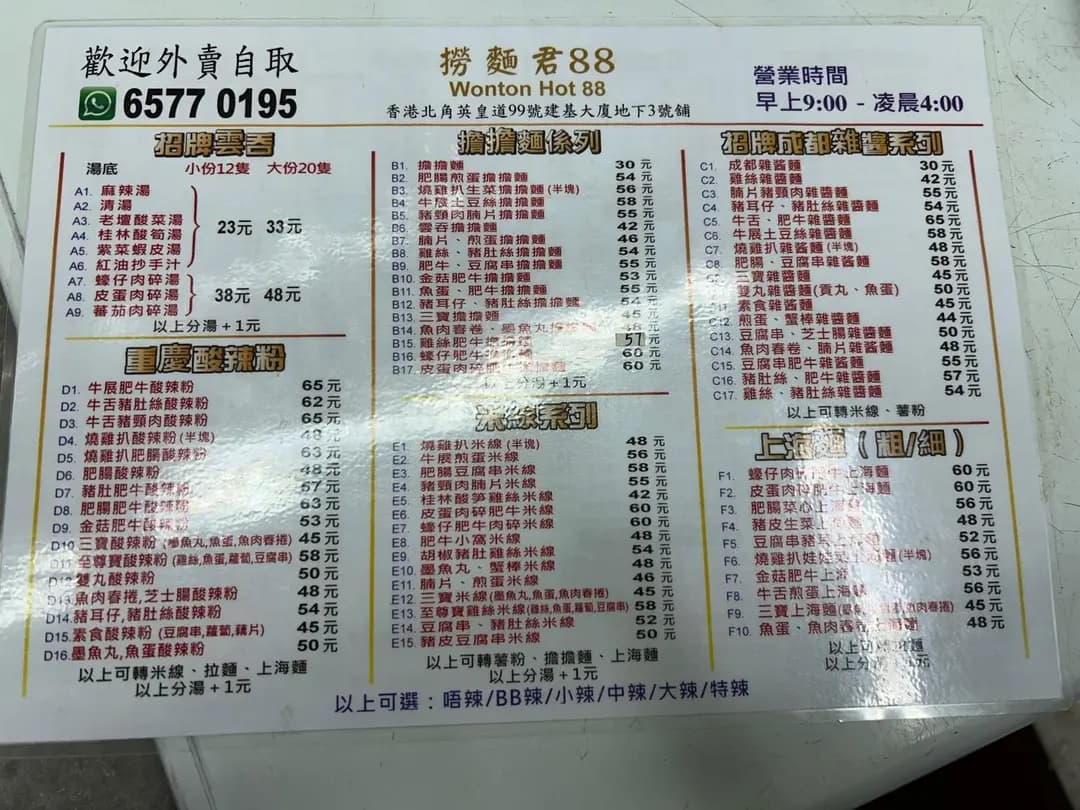 歡迎外賣自取
6577 0195
撈麵君88
Wonton Hot 88
香港北角英皇道99號建基大廈地下3號舖
營業時間
早上9:00 - 凌晨4:00
招牌雲吞
湯底 小份12隻 大份20隻
A1. 麻辣湯
A2. 清湯
A3. 老壇酸菜湯
A4. 桂林酸筍湯
A5. 紫菜蝦皮湯
A6. 紅油抄手汁
23元 33元
A7. 蠔仔肉碎湯
A8. 皮蛋肉碎湯
A9. 蕃茄肉碎湯
38元 48元
以上分湯+1元
重慶酸辣粉
D1. 牛展肥牛酸辣粉 65元
D2. 牛舌豬肚絲酸辣粉 62元
D3. 牛舌豬頸肉酸辣粉 65元
D4. 燒雞扒酸辣粉(半塊) 48元
D5. 燒雞扒肥腸酸辣粉 63元
D6. 肥腸酸辣粉 48元
D7. 豬肚肥牛酸辣粉 57元
D8. 肥腸肥牛酸辣粉 63元
D9. 金菇肥牛酸辣粉 53元
D10. 三寶酸辣粉(墨魚丸,魚蛋,魚肉春捲) 45元
D11. 至尊寶酸辣粉(雞絲,魚蛋,蘿蔔,豆腐串) 58元
D12. 雙丸酸辣粉 50元
D13. 魚肉春捲,芝士腸酸辣粉 48元
D14. 豬耳仔,豬肚絲酸辣粉 54元
D15. 素食酸辣粉(豆腐串,蘿蔔,藕片) 45元
D16. 墨魚丸,魚蛋酸辣粉 50元
以上可轉米線、拉麵、上海麵
以上分湯+1元
擔擔麵係列
B1. 擔擔麵 30元
B2. 肥腸煎蛋擔擔麵 54元
B3. 燒雞扒生菜擔擔麵(半塊) 56元
B4. 牛展土豆絲擔擔麵 58元
B5. 豬頸肉腩片擔擔麵 55元
B6. 雲吞擔擔麵 42元
B7. 腩片、煎蛋擔擔麵 46元
B8. 雞絲、豬肚絲擔擔麵 54元
B9. 肥牛、豆腐串擔擔麵 55元
B10. 金菇肥牛擔擔麵 53元
B11. 魚蛋、肥牛擔擔麵 55元
B12. 豬耳仔、豬肚絲擔擔麵 54元
B13. 三寶擔擔麵 45元
B14. 魚肉春卷、墨魚丸擔擔麵 48元
B15. 雞絲肥牛擔擔麵 57元
B16. 蠔仔肥牛擔擔麵 60元
B17. 皮蛋肉碎肥牛擔擔麵 60元
以上分湯+1元
米線系列
E1. 燒雞扒米線(半塊) 48元
E2. 牛展煎蛋米線 56元
E3. 肥腸豆腐串米線 58元
E4. 豬頸肉腩片米線 55元
E5. 桂林酸笋雞絲米線 42元
E6. 皮蛋肉碎肥牛米線 60元
E7. 蠔仔肥牛肉碎米線 60元
E8. 肥牛小窩米線 48元
E9. 胡椒豬肚雞絲米線 54元
E10. 墨魚丸、蟹棒米線 48元
E11. 腩片、煎蛋米線 46元
E12. 三寶米線(墨魚丸,魚蛋,魚肉春捲) 45元
E13. 至尊寶雞絲米線(雞絲,魚蛋,蘿蔔,豆腐串) 58元
E14. 豆腐串、豬肚絲米線 52元
E15. 豬皮豆腐串米線 50元
以上可轉薯粉、擔擔麵、上海麵
以上分湯+1元
招牌成都雜醬系列
C1. 成都雜酱麵 30元
C2. 雞絲雜醬麵 42元
C3. 腩片豬頸肉雜醬麵 55元
C4. 豬耳仔、豬肚絲雜醬麵 54元
C5. 牛舌、肥牛雜醬麵 65元
C6. 牛展土豆絲雜醬麵 58元
C7. 燒雞扒雜醬麵(半塊) 48元
C8. 肥腸、豆腐串雜醬麵 58元
三寶雜醬麵 45元
雙丸雜醬麵(貢丸、魚蛋) 50元
素食雜醬麵 45元
C12. 煎蛋、蟹棒雜醬麵 44元
C13. 豆腐串、芝士腸雜醬麵 50元
C14. 魚肉春卷、腩片雜醬麵 48元
C15. 豆腐串肥牛雜醬麵 55元
C16. 豬肚絲、肥牛雜醬麵 57元
C17. 雞絲、豬肚絲雜醬麵 54元
以上可轉米線、薯粉
上海麵(粗/細)
F1. 蠔仔肉 上海麵 60元
F2. 皮蛋肉碎肥牛上海麵 60元
F3. 肥腸菜心上海麵 56元
F4. 豬皮生菜上海麵 48元
F5. 豆腐串豬 上海麵 52元
F6. 燒雞扒娃娃菜上海麵(半塊) 56元
F7. 金菇肥牛上海麵 53元
F8. 牛舌煎蛋上海麵 56元
F9. 三寶上海麵( 魚肉春捲) 45元
F10. 魚蛋、魚肉春卷上海麵 48元
以上
以上分湯+1元
以上可選：唔辣/BB辣/小辣/中辣/大辣/特辣